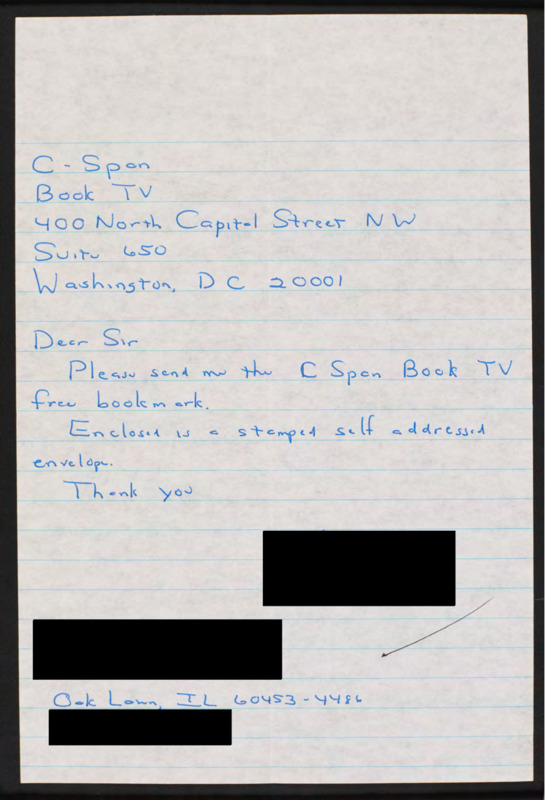 C-Span
Book TV
400 North Capitol Street NW
Suite 650
Washington, DC 20001
Dear Sir
Please send me the C Span Book TV
free bookmark.
Enclosed is a stamped self addressed
envelope.
Thank you
Oak Lawn, IL 60453-4486